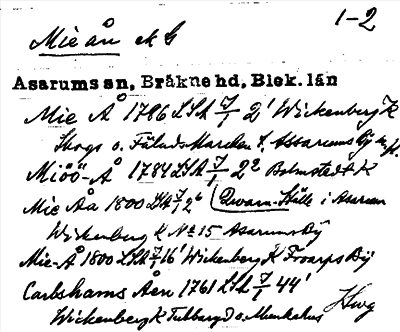 1-2
Mieån åG
Asarums sn, Bräkne hd, Blek. län
Mie Å 1786 LSA J/1 2¹ Wickenberg K
Skogs o. Fälads Marcken t. Assarums By m. fl.
Miöö-Å 1784 LSA J/1 2² Bolmstedt K
Mie Åa 1800 LSA J/1 2⁶ (Qwarn-Ställe i Asarum
Wickenberg K No 15 Asarums By
Mie-Å 1800 LSA J/1 16¹ Wickenberg K Froarps By
Carlshams Åen 1761 LSA J/1 44¹
Wickenberg K Tubbaryd o. Munkahus